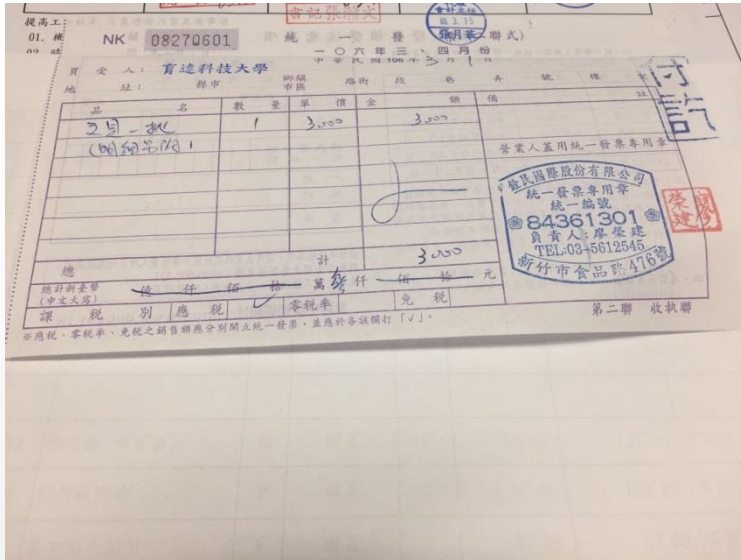 書記張瀞文
提高工
01. 機
NK 08270601 統一發票(二聯式)
106.3.15
張月華
一〇六年三、四月份
中華民國106年3月1日
買受人: 育達科技大學
地址: 縣市 鄉鎮市區 路街 段 巷 弄 號 樓 室
品名 數量 單價 金額 備註
文具一批 1 3,000 3,000
付訖
(明細如附)
營業人蓋用統一發票專用章
股份有限公司
統一發票專用章
統一編號
84361301
負責人:廖榮建
TEL:03-5612545
新竹市食品路476號
總計 3,000
總計新臺幣(中文大寫) 億仟佰拾萬參仟佰拾元
課稅別 應稅 ✓ 零稅率 免稅
第二聯 收執聯
※應稅、零稅率、免稅之銷售額應分別開立統一發票,並應於各該欄打「✓」。